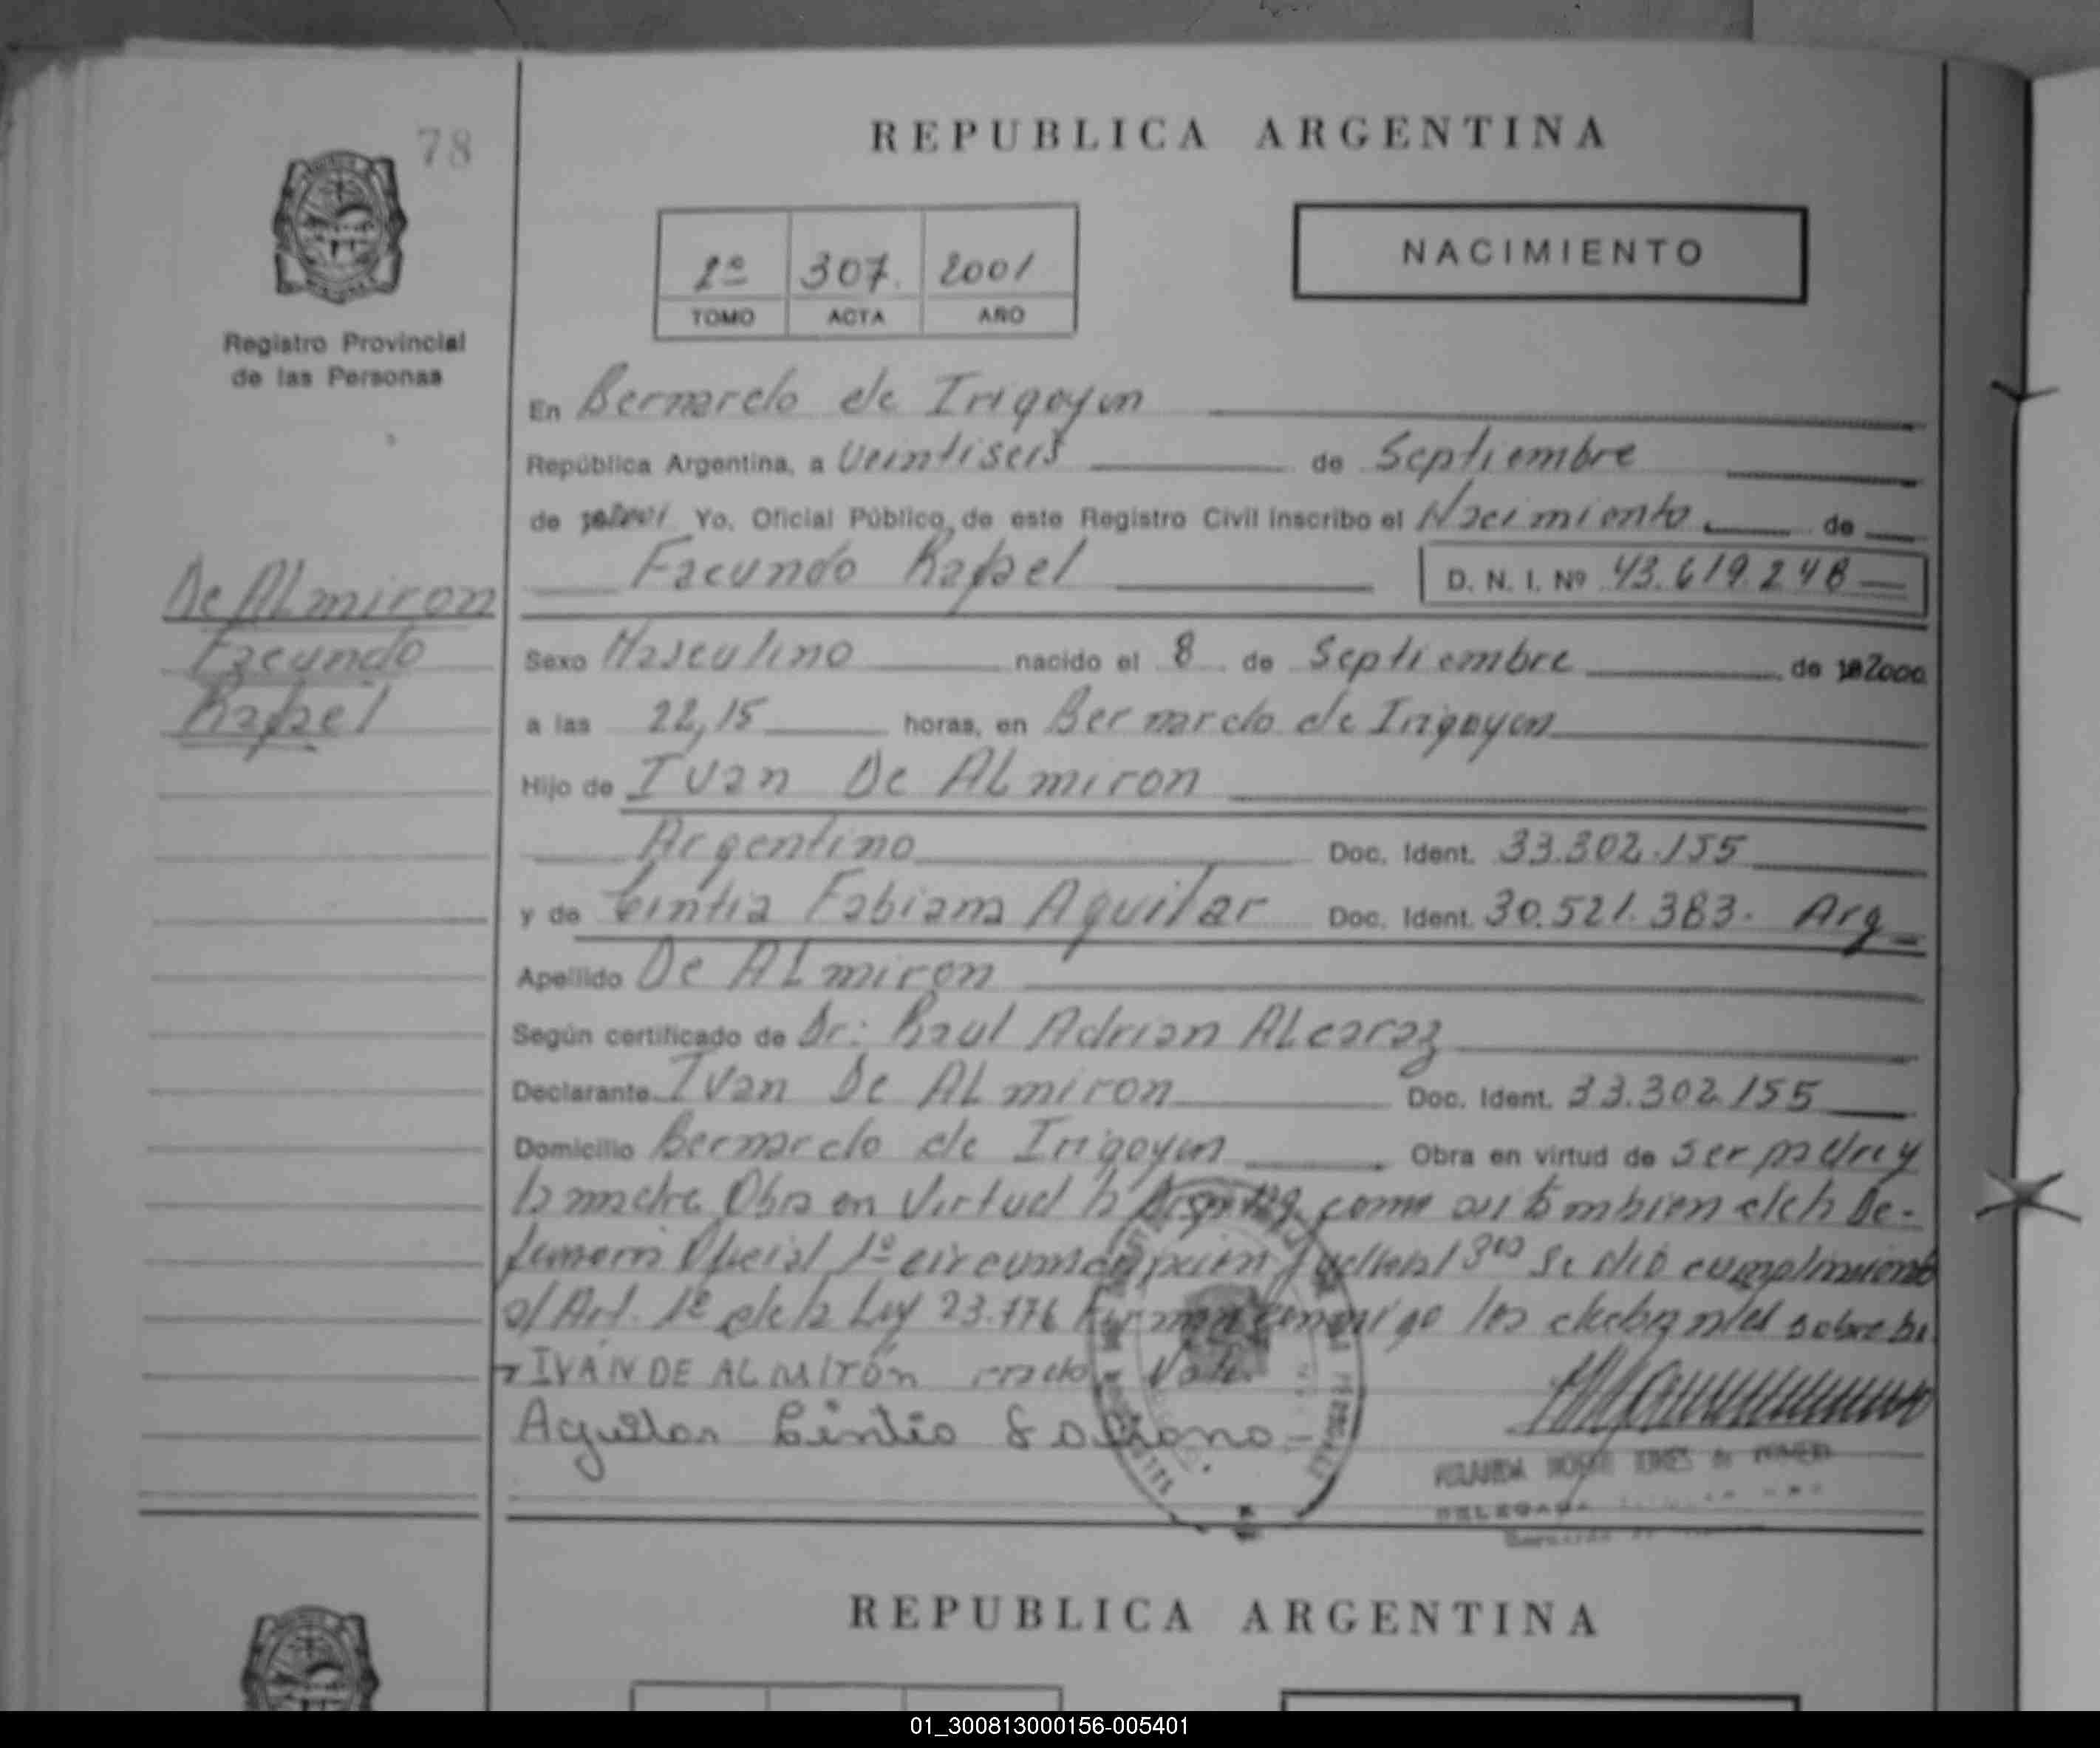 78
REPUBLICA ARGENTINA
2º 307. 2001
TOMO ACTA AÑO
NACIMIENTO
Registro Provincial
de las Personas
En Bernardo de Irigoyen
República Argentina, a Veintiseis de Septiembre
de 2001 Yo, Oficial Público, de este Registro Civil inscribo el Nacimiento de
De ALmiron
Facundo
Rafael
Facundo Rafael D. N. I. Nº 43.619.248
Sexo Masculino nacido el 8 de Septiembre de 2000
a las 22,15 horas, en Bernardo de Irigoyen
Hijo de Ivan De ALmiron
Argentino Doc. Ident. 33.302.155
y de Cintia Fabiana Aguilar Doc. Ident. 30.521.383. Arg
Apellido De ALmiron
Según certificado de Dr: Raul Adrian ALcaraz
Declarante Ivan De ALmiron Doc. Ident. 33.302.155
Domicilio Bernardo de Irigoyen Obra en virtud de ser padre y
la madre Obra en Virtud la como asi tambien de la De-
Oficial 1º se dió cumplimiento
al Art. 1º de la Ley 23.776 Firman conmigo los
IVÁN DE ALMIRÓN Vale.
Aguilar Cintia Fabiana
DELEGADA
REPUBLICA ARGENTINA
01_300813000156-005401